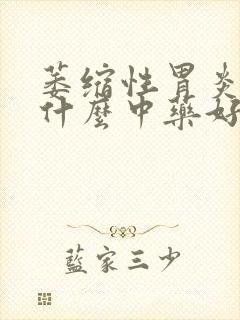 萎缩性胃炎
什麼中藥好
藍家三少